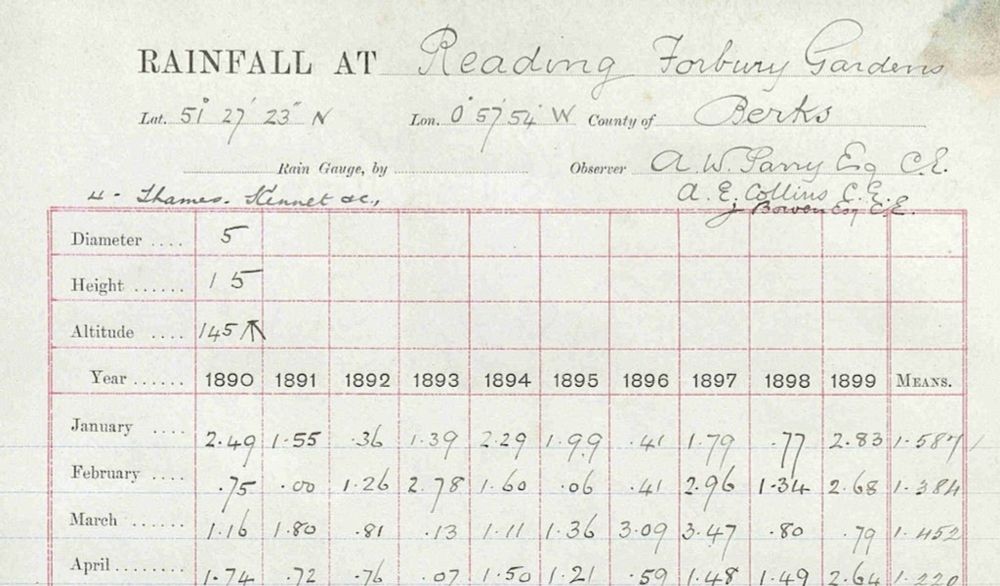 RAINFALL AT Reading Forbury Gardens
Lat. 51° 27' 23" N Lon. 0° 57' 54" W County of Berks
Rain Gauge, by Observer A. W. Parry Esq C.E.
4 - Thames. Kennet &c., A. E. Collins C.E.
J Bowen Esq C.E.
Diameter .... 5
Height ...... 15
Altitude .... 145
Year ...... 1890 1891 1892 1893 1894 1895 1896 1897 1898 1899 MEANS.
January .... 2.49 1.55 .36 1.39 2.29 1.99 .41 1.79 .77 2.83 1.587
February .... .75 .00 1.26 2.78 1.60 .06 .41 2.96 1.34 2.68 1.384
March ...... 1.16 1.80 .81 .13 1.11 1.36 3.09 3.47 .80 .79 1.452
April ........ 1.74 .72 .76 .07 1.50 1.21 .59 1.48 1.49 2.64 1.220